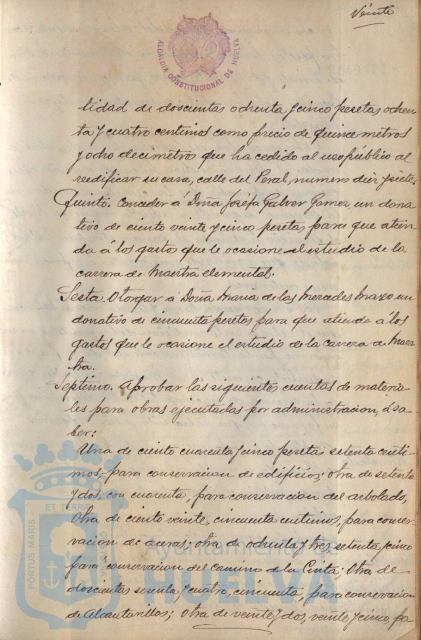 Veinte
ALCALDIA CONSTITUCIONAL DE HUELVA
tidad de doscientas ochenta y cinco pesetas ochen
ta y cuatro centimos como precio de quince metros
y ocho decimetros que ha cedido al uso publico al
reedificar su casa, calle del Peral, numero diez y siete.
Quinto. Conceder á Doña Josefa Galvez Gomez un dona
tivo de ciento veinte y cinco pesetas para que atien
da á los gastos que le ocasione el estudio de la
carrera de Maestra elemental.
Sesto. Otorgar a Doña Maria de las Mercedes Mazo un
donativo de cincuenta pesetas para que atienda á los
gastos que le ocasione el estudio de la carrera de Maes
tra.
Septimo. Aprobar las siguientes cuentas de materia
les para obras ejecutadas por administracion, á sa
ber:
Una de ciento cuarenta y cinco pesetas setenta centi
mos, para conservacion de edificios; otra de setenta
y dos, con cuarenta, para conservacion del arbolado,
otra de ciento veinte, cincuenta centimos, para conser
vacion de aceras; otra de ochenta y tres setenta y cinco
para conservacion del camino de la Cinta; otra de
doscientas sesenta y cuatro, cincuenta, para conservacion
de alcantarillas; otra de veinte y dos, veinte y cinco, pa
ET TERRÆ
PORTUS MARIS
Ayuntamiento de
HUELVA